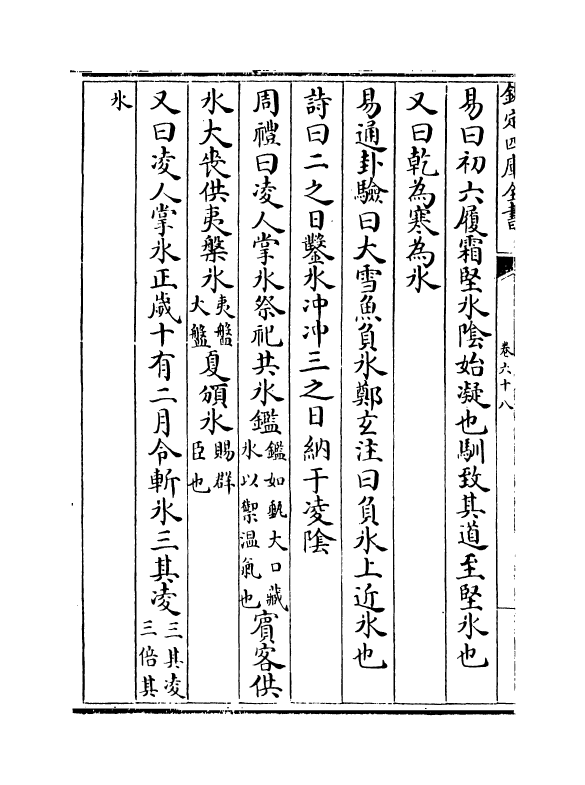 欽定四庫全書
卷六十八
易曰初六履霜堅氷隂始凝也馴致其道至堅氷也
又曰乾為寒為氷
易通卦驗曰大雪魚負氷鄭玄注曰負氷上近氷也
詩曰二之日鑿氷冲冲三之日納于凌隂
周禮曰凌人掌氷祭祀共氷鑑鑑如甀大口藏氷以禦温氣也賔客供
氷大丧供夷槃氷夷盤大盤夏頒氷賜群臣也
又曰凌人掌氷正嵗十有二月令斬氷三其凌三其凌三倍其
氷